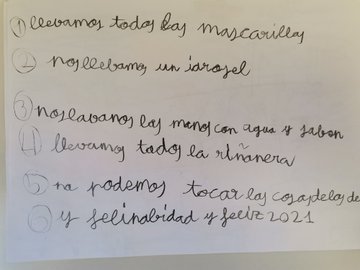 ① llevamos todos las mascarillas
② nos llebamos un jarosel
③ nos lavanos las manos con agua y jabon
④ llevamos todos la riñanera
⑤ no podemos tocar las cosas de los de
⑥ y felinabidad y feliz 2021